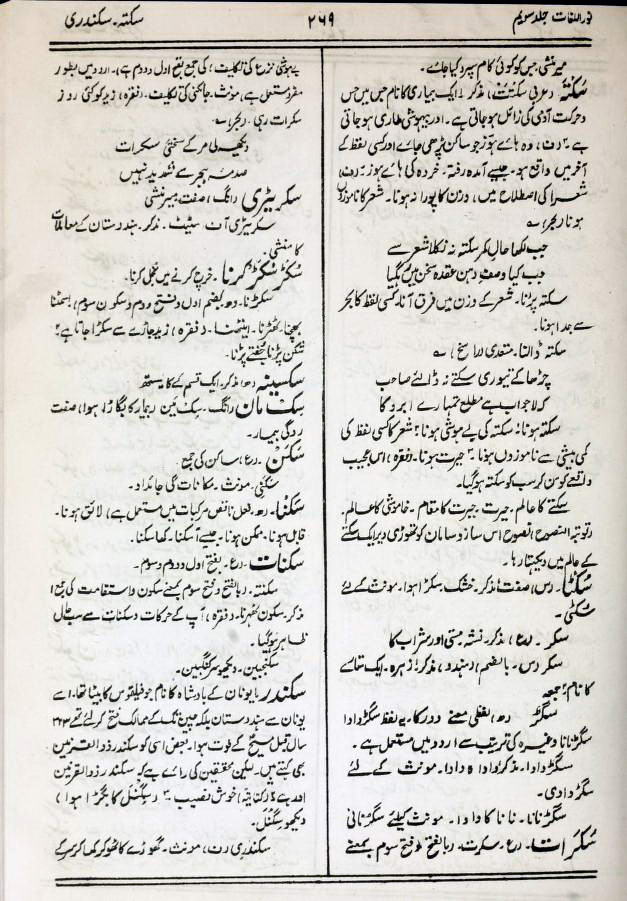 نور اللغات جلد سویم
۲۶۹
سکتہ۔ سکندری
میر منشی جس کو کوئی کام سپرد کیا جائے۔
سکتہ (عربی سکتت) مذکر (ایک بیماری کا نام جس میں حس
و حرکت آدمی کی زائل ہو جاتی ہے۔ اور بیہوشی طاری ہو جاتی
ہے ۲ (ف) وہ ہائے ہوّز جو ساکن پڑھی جائے اور کسی لفظ کے
آخر میں واقع ہو۔ جیسے آمدہ رفتہ۔ خردہ کی ہائے ہوز ۳ (ف)
شعرا کی اصطلاح میں، وزن کا پورا نہ ہونا۔ شعر کا ناموزوں
ہونا (بحر) ؎
جب لکھا حال کمر سکتہ نہ نکلا شعر سے
جب کیا وصف دہن عقدہ سخن میں رہ گیا
سکتہ پڑنا۔ شعر کے وزن میں فرق آنا۔ کسی لفظ کا بحر
سے جدا ہونا۔
سکتہ ڈالنا۔ متعدی (راسخ) ؎
چڑھا کے تیوری سکتے نہ ڈالئے صاحب
کہ لاجواب ہے مطلع تمہارے ابرو کا
سکتہ ہونا۔ سکتہ کی بے ہوشی ہونا ۲ شعر کا کسی لفظ کی
کمی بیشی سے ناموزوں ہونا ۳ حیرت ہونا۔ (فقرہ) اس عجیب
واقعے کو سن کر سب کو سکتہ ہو گیا۔
سکتے کا عالم۔ حیرت۔ حیرت کا مقام۔ خاموشی کا عالم۔
(توبۃ النصوح) نصوح اس ساز و سامان کو تھوڑی دیر ایک سکتے
کے عالم میں دیکھتا رہا۔
سکٹا۔ (س) صفت مذکر۔ خشک سکڑا ہوا۔ مونث کے لئے
سکٹی۔
سکر۔ (ع) مذکر۔ نشہ۔ مستی اور شراب کا
سکر (س۔ بالضم) (ہندو) مذکر ۱ زہرہ۔ ایک ستارے
کا نام ۲ جمعہ
سکڑ (ھ) لفظی معنے دور کا۔ یہ لفظ سکڑ دادا
سکڑ نانا وغیرہ کی ترکیب سے اردو میں مستعمل ہے۔
سکڑ دادا۔ مذکر دادا کا دادا۔ مونث کے لئے
سکڑ دادی۔
سکڑ نانا۔ نانا کا دادا۔ مونث کیلئے سکڑ نانی
سکرات۔ (ع۔ سکرت۔ (بالفتح و فتح سوم بمعنے
بیہوشی نزع کی تکلیف) کی جمع بفتح اول و دوم ہے)۔ اردو میں بطور
مفرد مستعمل ہے، مونث۔ جانکنی کی تکلیف۔ (فقرہ) زید کو کئی روز
سکرات رہی۔ (بحر) ؎
دیکھ لی مر کے سختی سکرات
صدمہ ہجر سے شدید نہیں
سکریٹری (انگ) صفت۔ میر منشی
سکریٹری آف سٹیٹ۔ مذکر۔ ہندوستان کے معاملات
کا منشی۔
سکڑ سکڑ کرنا۔ خرچ کرنے میں بخل کرنا۔
سکڑنا۔ (ھ) بضم اول و فتح دوم و سکون سوم) سمٹنا
بھچنا۔ ٹھٹرنا۔ اینٹھنا۔ (فقرہ) زید جاڑے سے سکڑا جاتا ہے ۲
شکن پڑنا۔ چنٹے پڑنا۔
سکسینہ (ھ) مذکر۔ ایک قسم کے کایستھ
سک مان (انگ۔ سک مین (بیمار کا بگاڑا ہوا) صفت
(دگی بیمار۔
سکن۔ (ع) ساکن کی جمع
سکنی۔ مونث۔ مکانات کی جائداد۔
سکنا۔ (ھ) فعل ناقص مرکبات میں مستعمل ہے، لائق ہونا۔
قابل ہونا۔ ممکن ہونا۔ جیسے آ سکنا۔ کھا سکنا۔
سکنات (ع۔ بفتح اول و دوم و سوم۔
سکنتہ۔ (بالفتح و فتح سوم بمعنے سکون و استقامت کی جمع)
مذکر۔ سکون ٹھہرنا۔ (فقرہ) آپ کے حرکات و سکنات سے سب حال
ظاہر ہو گیا۔
سکنجبین۔ دیکھو سرکنگبین۔
سکندر ۱ یونان کے بادشاہ کا نام جو فیلقوس کا بیٹا تھا۔ اسے
یونان سے ہندوستان بلکہ چین تک کے ممالک فتح کر لئے تھے ۳۲۳
سال قبل مسیح کے فوت ہوا۔ بعض اسی کو سکندر ذوالقرنین
بھی کہتے ہیں۔ لیکن محققین کی رائے ہے کہ سکندر ذوالقرنین
اور ہے ۲ (کنایۃً) خوش نصیب۔ ۳ (سگنل کا بگڑا ہوا)
دیکھو سگنل۔
سکندری (ف) مونث۔ گھوڑے کا ٹھوکر کھا کر سر کے